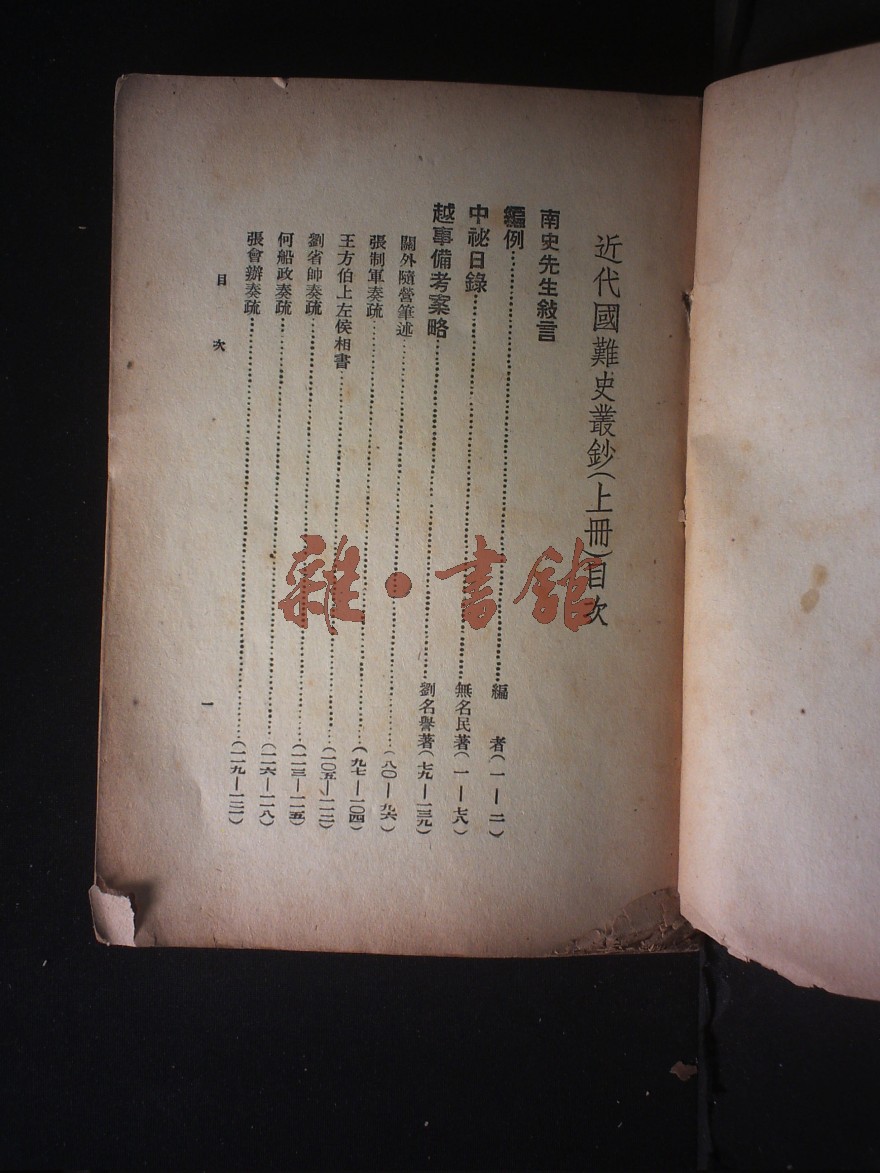 近代國難史叢鈔(上冊)目次
南史先生敍言
編例 編者(一—二)
中祕日錄 無名民著(一—七八)
越事備考案略 劉名譽著(七九—一三九)
關外隨營筆述 (八〇—九六)
張制軍奏疏 (九七—一〇四)
王方伯上左侯相書 (一〇五—一一二)
劉省帥奏疏 (一一三—一一五)
何船政奏疏 (一一六—一一八)
張會辦奏疏 (一一九—一二一)
目次
一
雜·書館